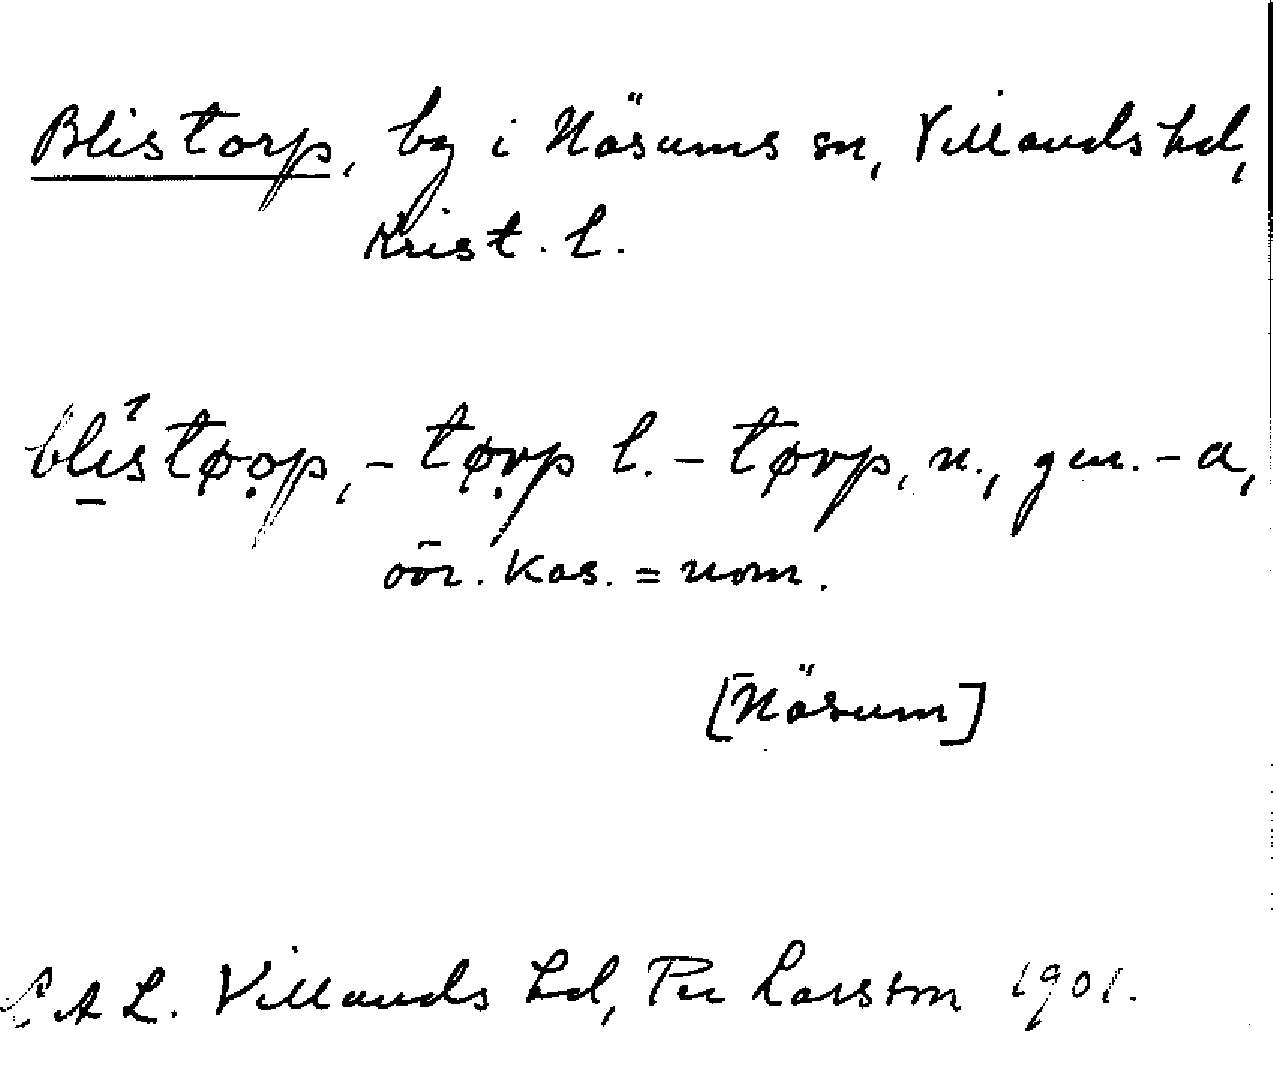 Blistorp, by i Näsums sn, Villands hd,
Krist. l.
blistø̣ọp, -tø̣rp l. -tørp, n., gen. -a,
öör. kas. = nom.
[Näsum]
L A L. Villands hd, Per Larsson 1901.